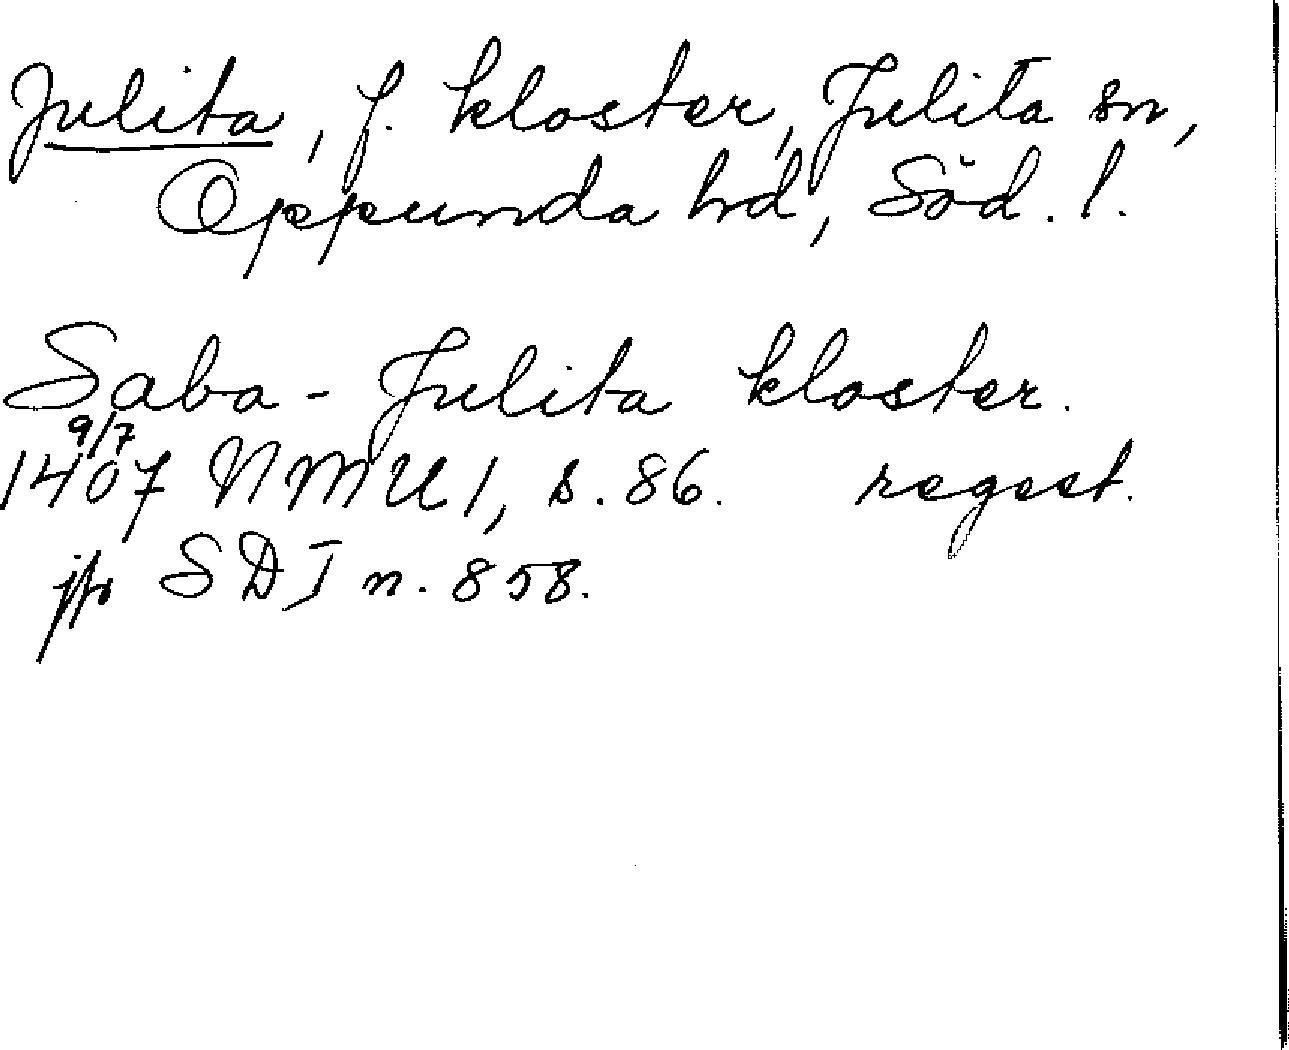 Julita, f. kloster, Julita sn,
Oppunda hd, Söd. l.
Saba-Julita kloster.
9/7
1407 NMU 1, s. 86. regest.
jfr SD I n. 858.